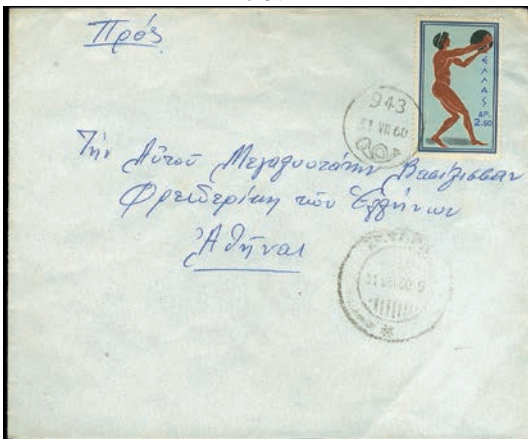 Πρός
ΕΛΛΑΣ
ΔΡ.
2.50
943
31 VII 60
Τὴν Αὐτοῦ Μεγαλειοτάτην Βασίλισσαν
Φρειδερίκη τῶν Ἑλλήνων
Ἀθήναι
31 VII 60 9